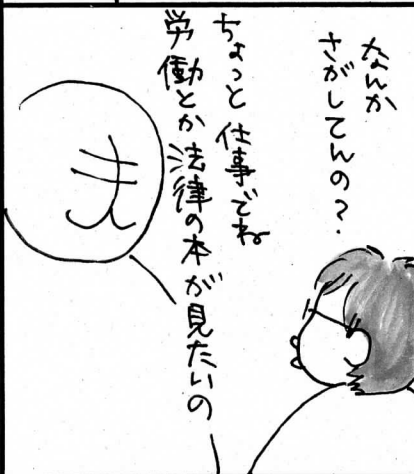 なんか
さがしてんの？
ちょっと仕事でね
労働とか法律の本が見たいの
夫